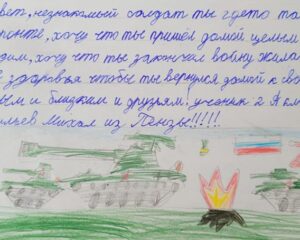 вет, незнакомый солдат ты где то та
фронте, хочу что ты пришел домой целым
дим, хочу что ты закончил войну жила
здоровья чтобы ты вернулся домой к сво
ым и близким и друзьям. ученик 2 А кла
ильев Михал из Пензы!!!!!